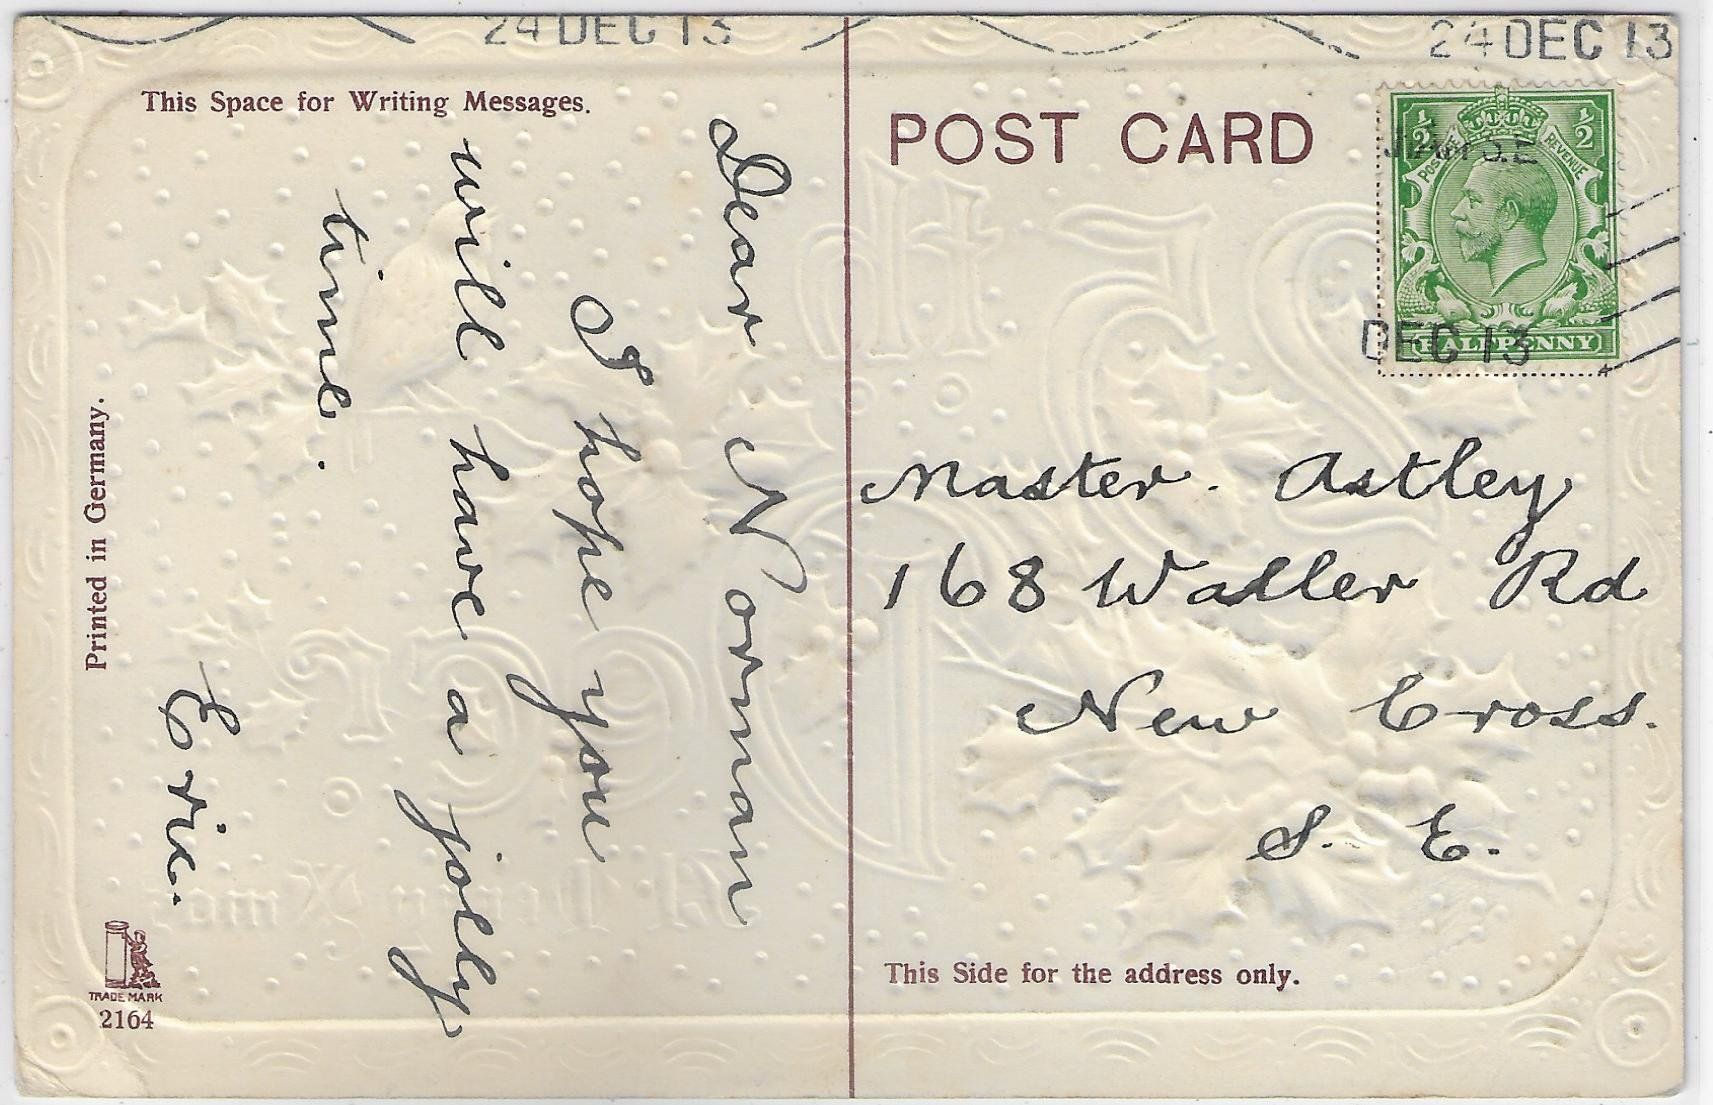 24 DEC 13
24 DEC 13
This Space for Writing Messages.
Dear Norman
I hope you
will have a jolly
time.
Eric.
Printed in Germany.
TRADE MARK
2164
POST CARD
1/2 1/2
POSTAGE REVENUE
HALFPENNY
S.E
DEC 13
Master. Astley
168 Waller Rd
New Cross.
S. E.
This Side for the address only.
A Merry Xmas